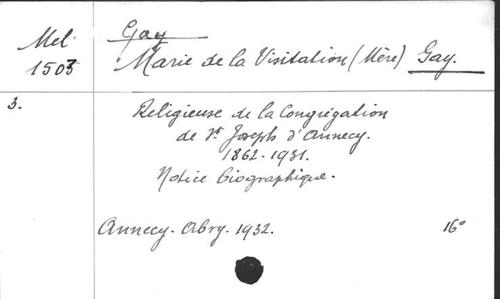 Gay
Mel.
1503
Marie de la Visitation (Mère) Gay.
3.
Religieuse de la Congrégation
de St Joseph d'Annecy.
1862-1931.
Notice biographique.
Annecy. Abry. 1932.
16°